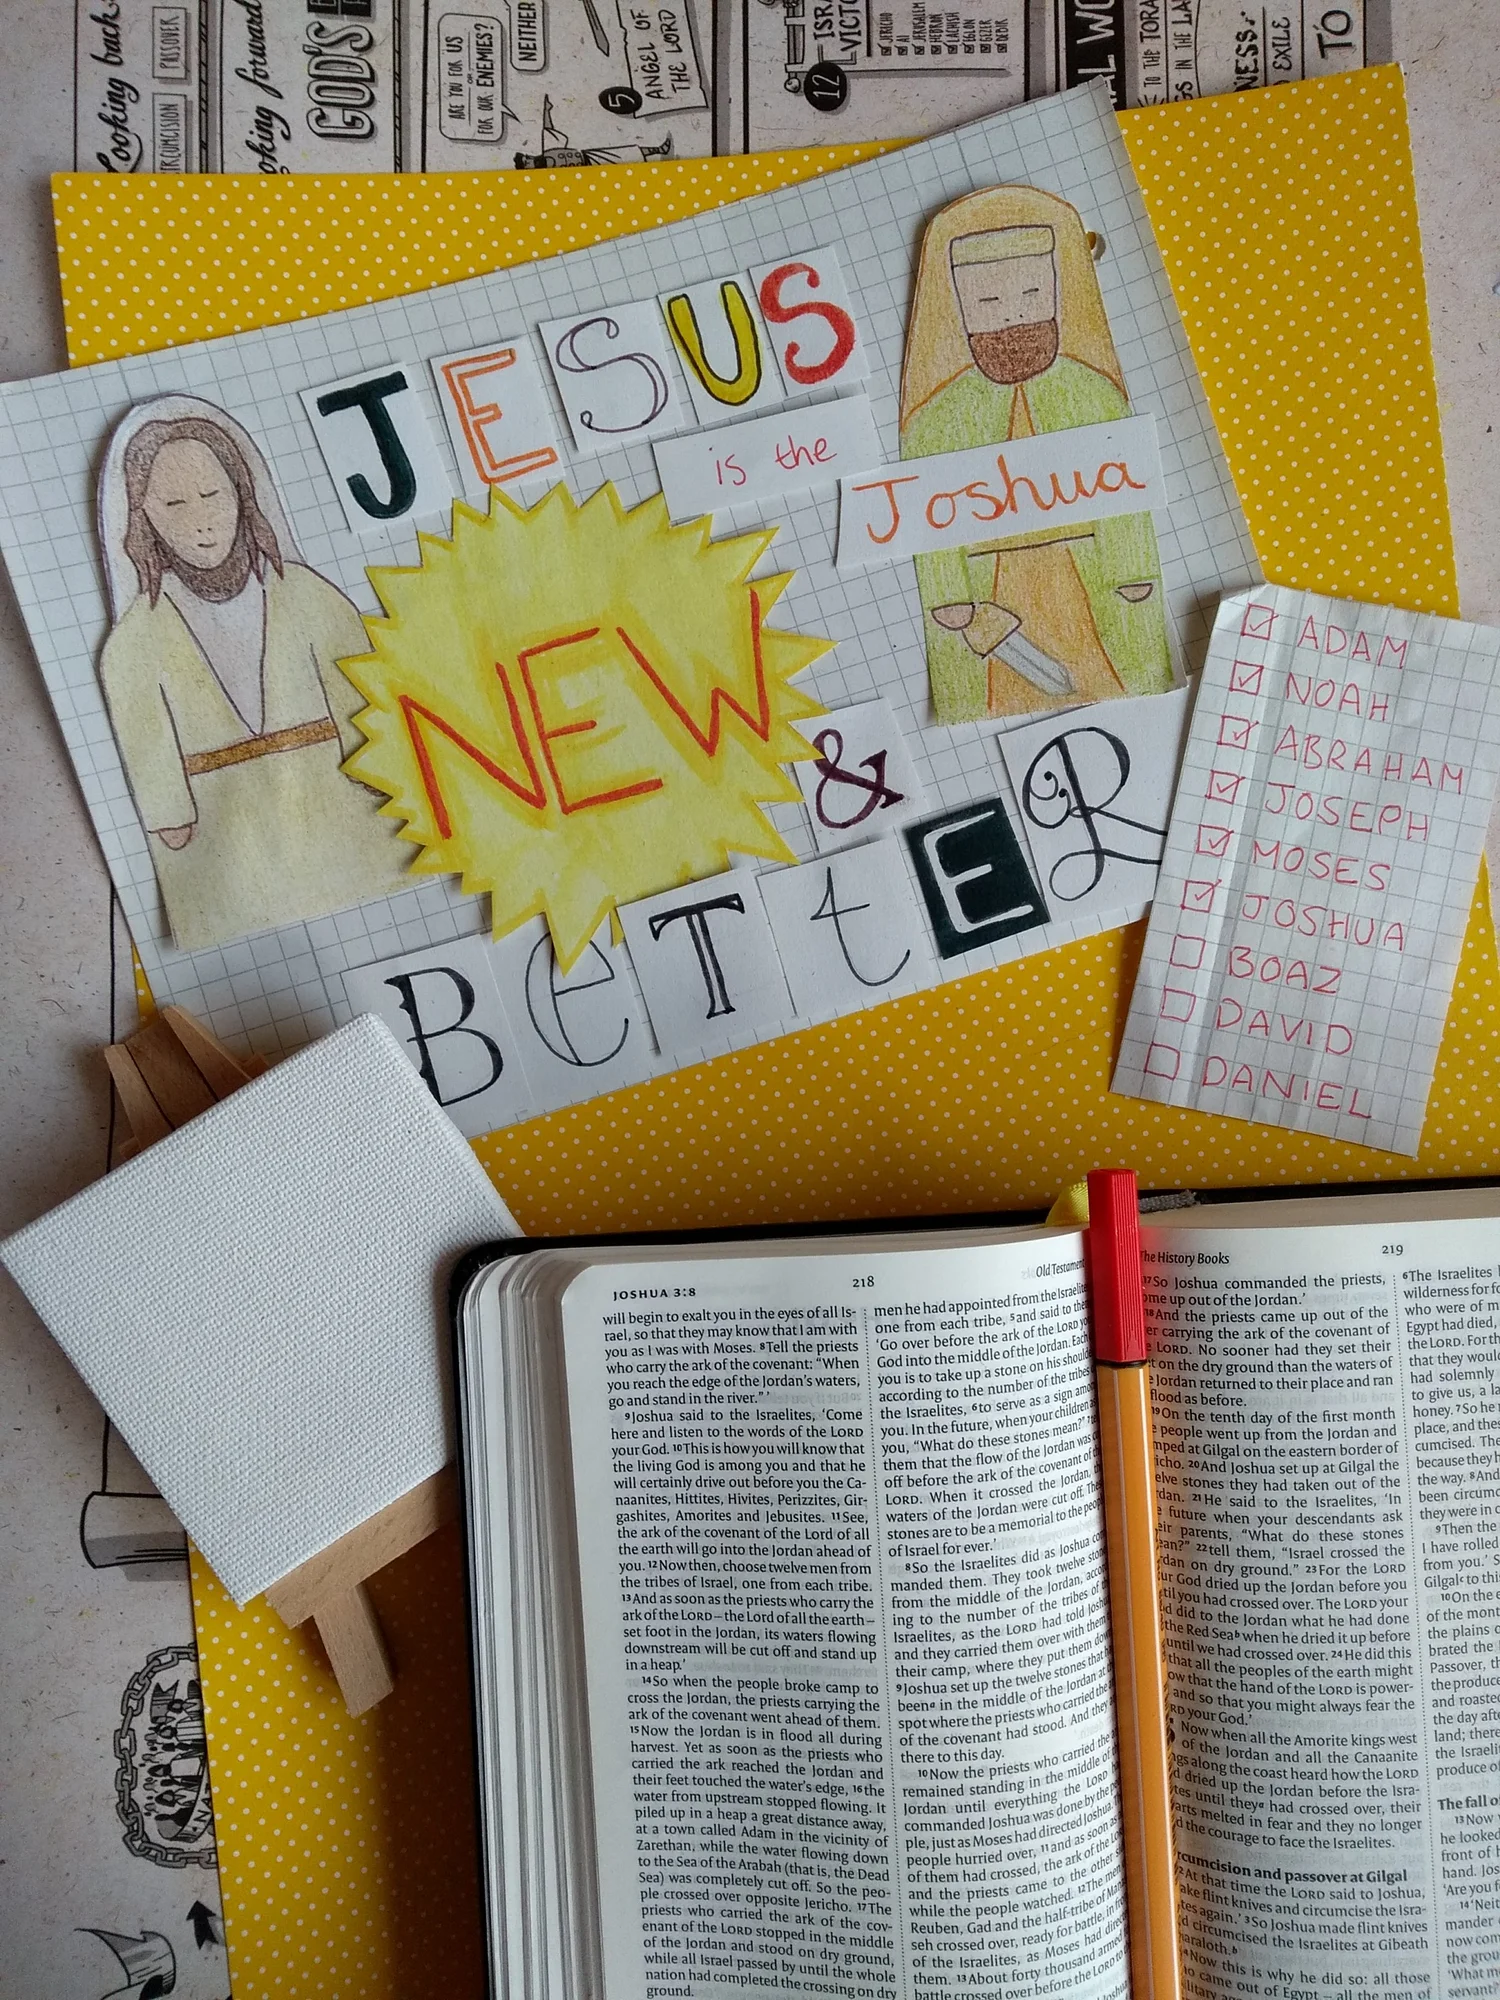 Looking back:
PASSOVER
CIRCUMCISION
GOD'S
ARE YOU FOR US
OR
FOR OUR ENEMIES?
NEITHER
5
ANGEL OF
THE LORD
12
JERICHO
AI
JERUSALEM
HEBRON
LACHISH
EGLON
GEZER
DEBIR
TO THE
IN THE
EXILE
TO
JESUS
is the
NEW
Joshua
&
BeTtER
ADAM
NOAH
ABRAHAM
JOSEPH
MOSES
JOSHUA
BOAZ
DAVID
DANIEL
JOSHUA 3:8
218
Old Testament
will begin to exalt you in the eyes of all Is-
rael, so that they may know that I am with
you as I was with Moses. 8Tell the priests
who carry the ark of the covenant: “When
you reach the edge of the Jordan’s waters,
go and stand in the river.” ’
9Joshua said to the Israelites, ‘Come
here and listen to the words of the LORD
your God. 10This is how you will know that
the living God is among you and that he
will certainly drive out before you the Ca-
naanites, Hittites, Hivites, Perizzites, Gir-
gashites, Amorites and Jebusites. 11See,
the ark of the covenant of the Lord of all
the earth will go into the Jordan ahead of
you. 12Now then, choose twelve men from
the tribes of Israel, one from each tribe.
13And as soon as the priests who carry the
ark of the LORD – the Lord of all the earth –
set foot in the Jordan, its waters flowing
downstream will be cut off and stand up
in a heap.’
14So when the people broke camp to
cross the Jordan, the priests carrying the
ark of the covenant went ahead of them.
15Now the Jordan is in flood all during
harvest. Yet as soon as the priests who
carried the ark reached the Jordan and
their feet touched the water’s edge, 16the
water from upstream stopped flowing. It
piled up in a heap a great distance away,
at a town called Adam in the vicinity of
Zarethan, while the water flowing down
to the Sea of the Arabah (that is, the Dead
Sea) was completely cut off. So the peo-
ple crossed over opposite Jericho. 17The
priests who carried the ark of the cov-
enant of the LORD stopped in the middle
of the Jordan and stood on dry ground,
while all Israel passed by until the whole
nation had completed the crossing on dry
ground.
men he had appointed from the Israelites,
one from each tribe, 5and said to them,
‘Go over before the ark of the LORD
God into the middle of the Jordan. Each
you is to take up a stone on his
according to the number of the tribes
the Israelites, 6to serve as a sign among
you. In the future, when your children
you, “What do these stones mean?”
them that the flow of the Jordan was
off before the ark of the covenant of the
LORD. When it crossed the Jordan, the
waters of the Jordan were cut off. These
stones are to be a memorial to the people
of Israel for ever.’
8So the Israelites did as Joshua com-
manded them. They took twelve stones
from the middle of the Jordan,
ing to the number of the tribes of
Israelites, as the LORD had told Joshua
and they carried them over with them
their camp, where they put them down.
9Joshua set up the twelve stones that had
been in the middle of the Jordan at the
spot where the priests who carried the ark
of the covenant had stood. And they are
there to this day.
10Now the priests who carried the ark
remained standing in the middle of the
Jordan until everything the LORD had
commanded Joshua was done by the peo-
ple, just as Moses had directed Joshua.
people hurried over, 11and as soon as
of them had crossed, the ark of the LORD
and the priests came to the other side
while the people watched. 12The men of
Reuben, Gad and the half-tribe of
seh crossed over, ready for battle, in front
of the Israelites, as Moses had directed
them. 13About forty thousand armed for
battle crossed over before the LORD to the
The History Books
219
17So Joshua commanded the priests,
come up out of the Jordan.’
18And the priests came up out of the
carrying the ark of the covenant of
LORD. No sooner had they set their
on the dry ground than the waters of
Jordan returned to their place and ran
flood as before.
19On the tenth day of the first month
people went up from the Jordan and
at Gilgal on the eastern border of
20And Joshua set up at Gilgal the
stones they had taken out of the
21He said to the Israelites, ‘In
future when your descendants ask
parents, “What do these stones
mean?” 22tell them, “Israel crossed the
on dry ground.” 23For the LORD
God dried up the Jordan before you
until you had crossed over. The LORD your
did to the Jordan what he had done
the Red Sea when he dried it up before
until we had crossed over. 24He did this
that all the peoples of the earth might
know that the hand of the LORD is power-
and so that you might always fear the
your God.’
Now when all the Amorite kings west
of the Jordan and all the Canaanite
along the coast heard how the LORD
dried up the Jordan before the Isra-
until they had crossed over, their
melted in fear and they no longer
the courage to face the Israelites.
Circumcision and passover at Gilgal
2At that time the LORD said to Joshua,
flint knives and circumcise the Isra-
again.’ 3So Joshua made flint knives
circumcised the Israelites at Gibeath
4Now this is why he did so: all those
came out of Egypt – all the men of
6The Israelites
wilderness for
who were of
Egypt had died,
the LORD. For
that they would
had solemnly
to give us, a
honey. 7So he
place, and
because they
the way. 8And
been
they were in
9Then the
I have rolled
from you.’
Gilgal to this
10On the
of the month
the plains
Passover, the
the produce
and roasted
the day after
land; there
the Israelites
produce of
The fall of
13Now
he looked
front of
hand.
‘Are you
14‘Neither
mander
now
the ground
‘What